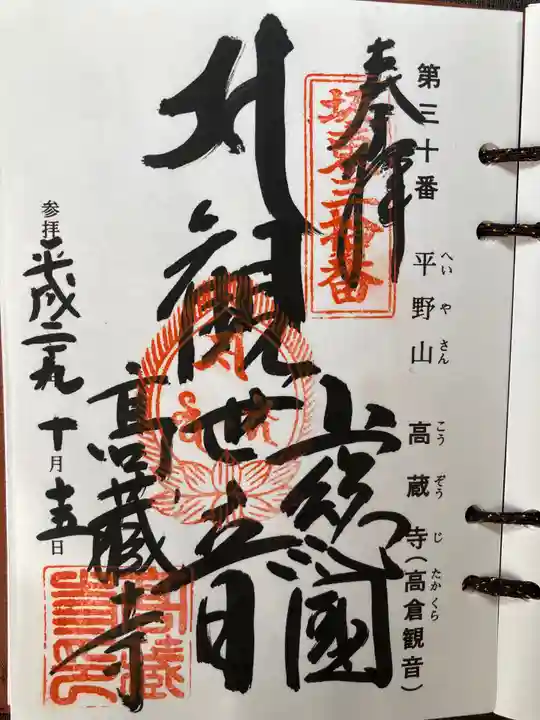 第三十番 平野山 高蔵寺(高倉観音)
へいやさん こうぞうじ たかくら
奉拝
坂東三十番
上總國
正観世音
高蔵寺
参拝 平成二九 十月十五日